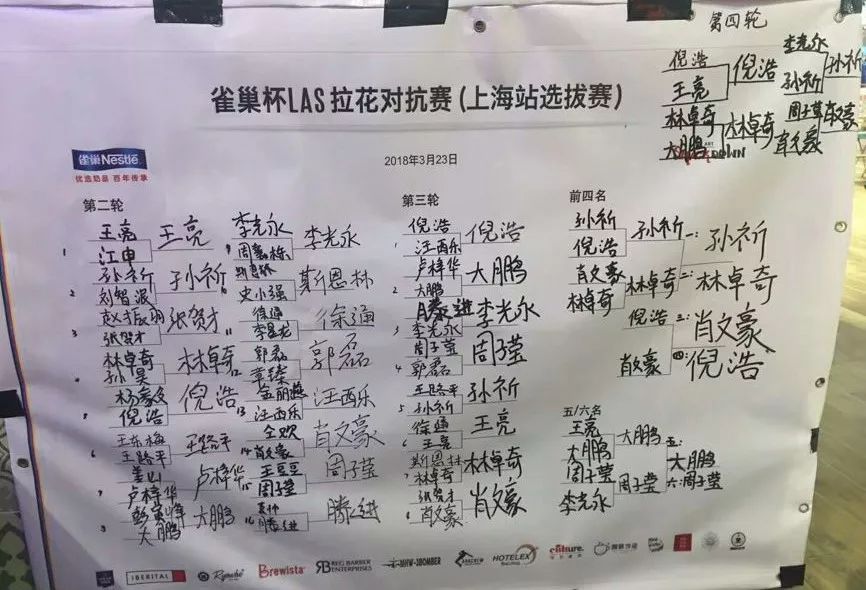 第四轮
倪浩
王亮
倪浩
林卓奇
大鹏
林卓奇
李光永
孙祈
孙祈
周子莹
肖文豪
肖文豪
DOWN
雀巢杯LAS拉花对抗赛(上海站选拔赛)
雀巢Nestlé
优选奶品 百年传承
2018年3月23日
第二轮
1
王亮
江申
王亮
2
孙祈
刘智源
孙祈
3
张贺才
张贺才
林卓奇
孙昊
林卓奇
倪浩
倪浩
6
王东梅
王路平
王路平
7
姜山
卢梓华
卢梓华
大鹏
大鹏
9
李光永
李光永
史小强
斯恩林
11
徐通
徐通
12
郭磊
郭磊
13
汪西乐
汪西乐
14
全欢
肖文豪
肖文豪
15
王豆豆
周子莹
周子莹
16
滕进
滕进
第三轮
1
倪浩
汪西乐
倪浩
2
卢梓华
大鹏
大鹏
3
滕进
李光永
李光永
4
周子莹
郭磊
周子莹
5
王路平
孙祈
孙祈
6
徐通
王亮
王亮
7
斯恩林
林卓奇
林卓奇
8
张贺才
肖文豪
肖文豪
前四名
孙祈
倪浩
孙祈
肖文豪
林卓奇
林卓奇
倪浩
肖文豪
一:孙祈
二:林卓奇
三:肖文豪
四:倪浩
五/六名
王亮
大鹏
大鹏
周子莹
李光永
周子莹
五:大鹏
六:周子莹
IBERITAL
Brewista
RB REG BARBER ENTERPRISES
MHW-3BOMBER
HOTELEX